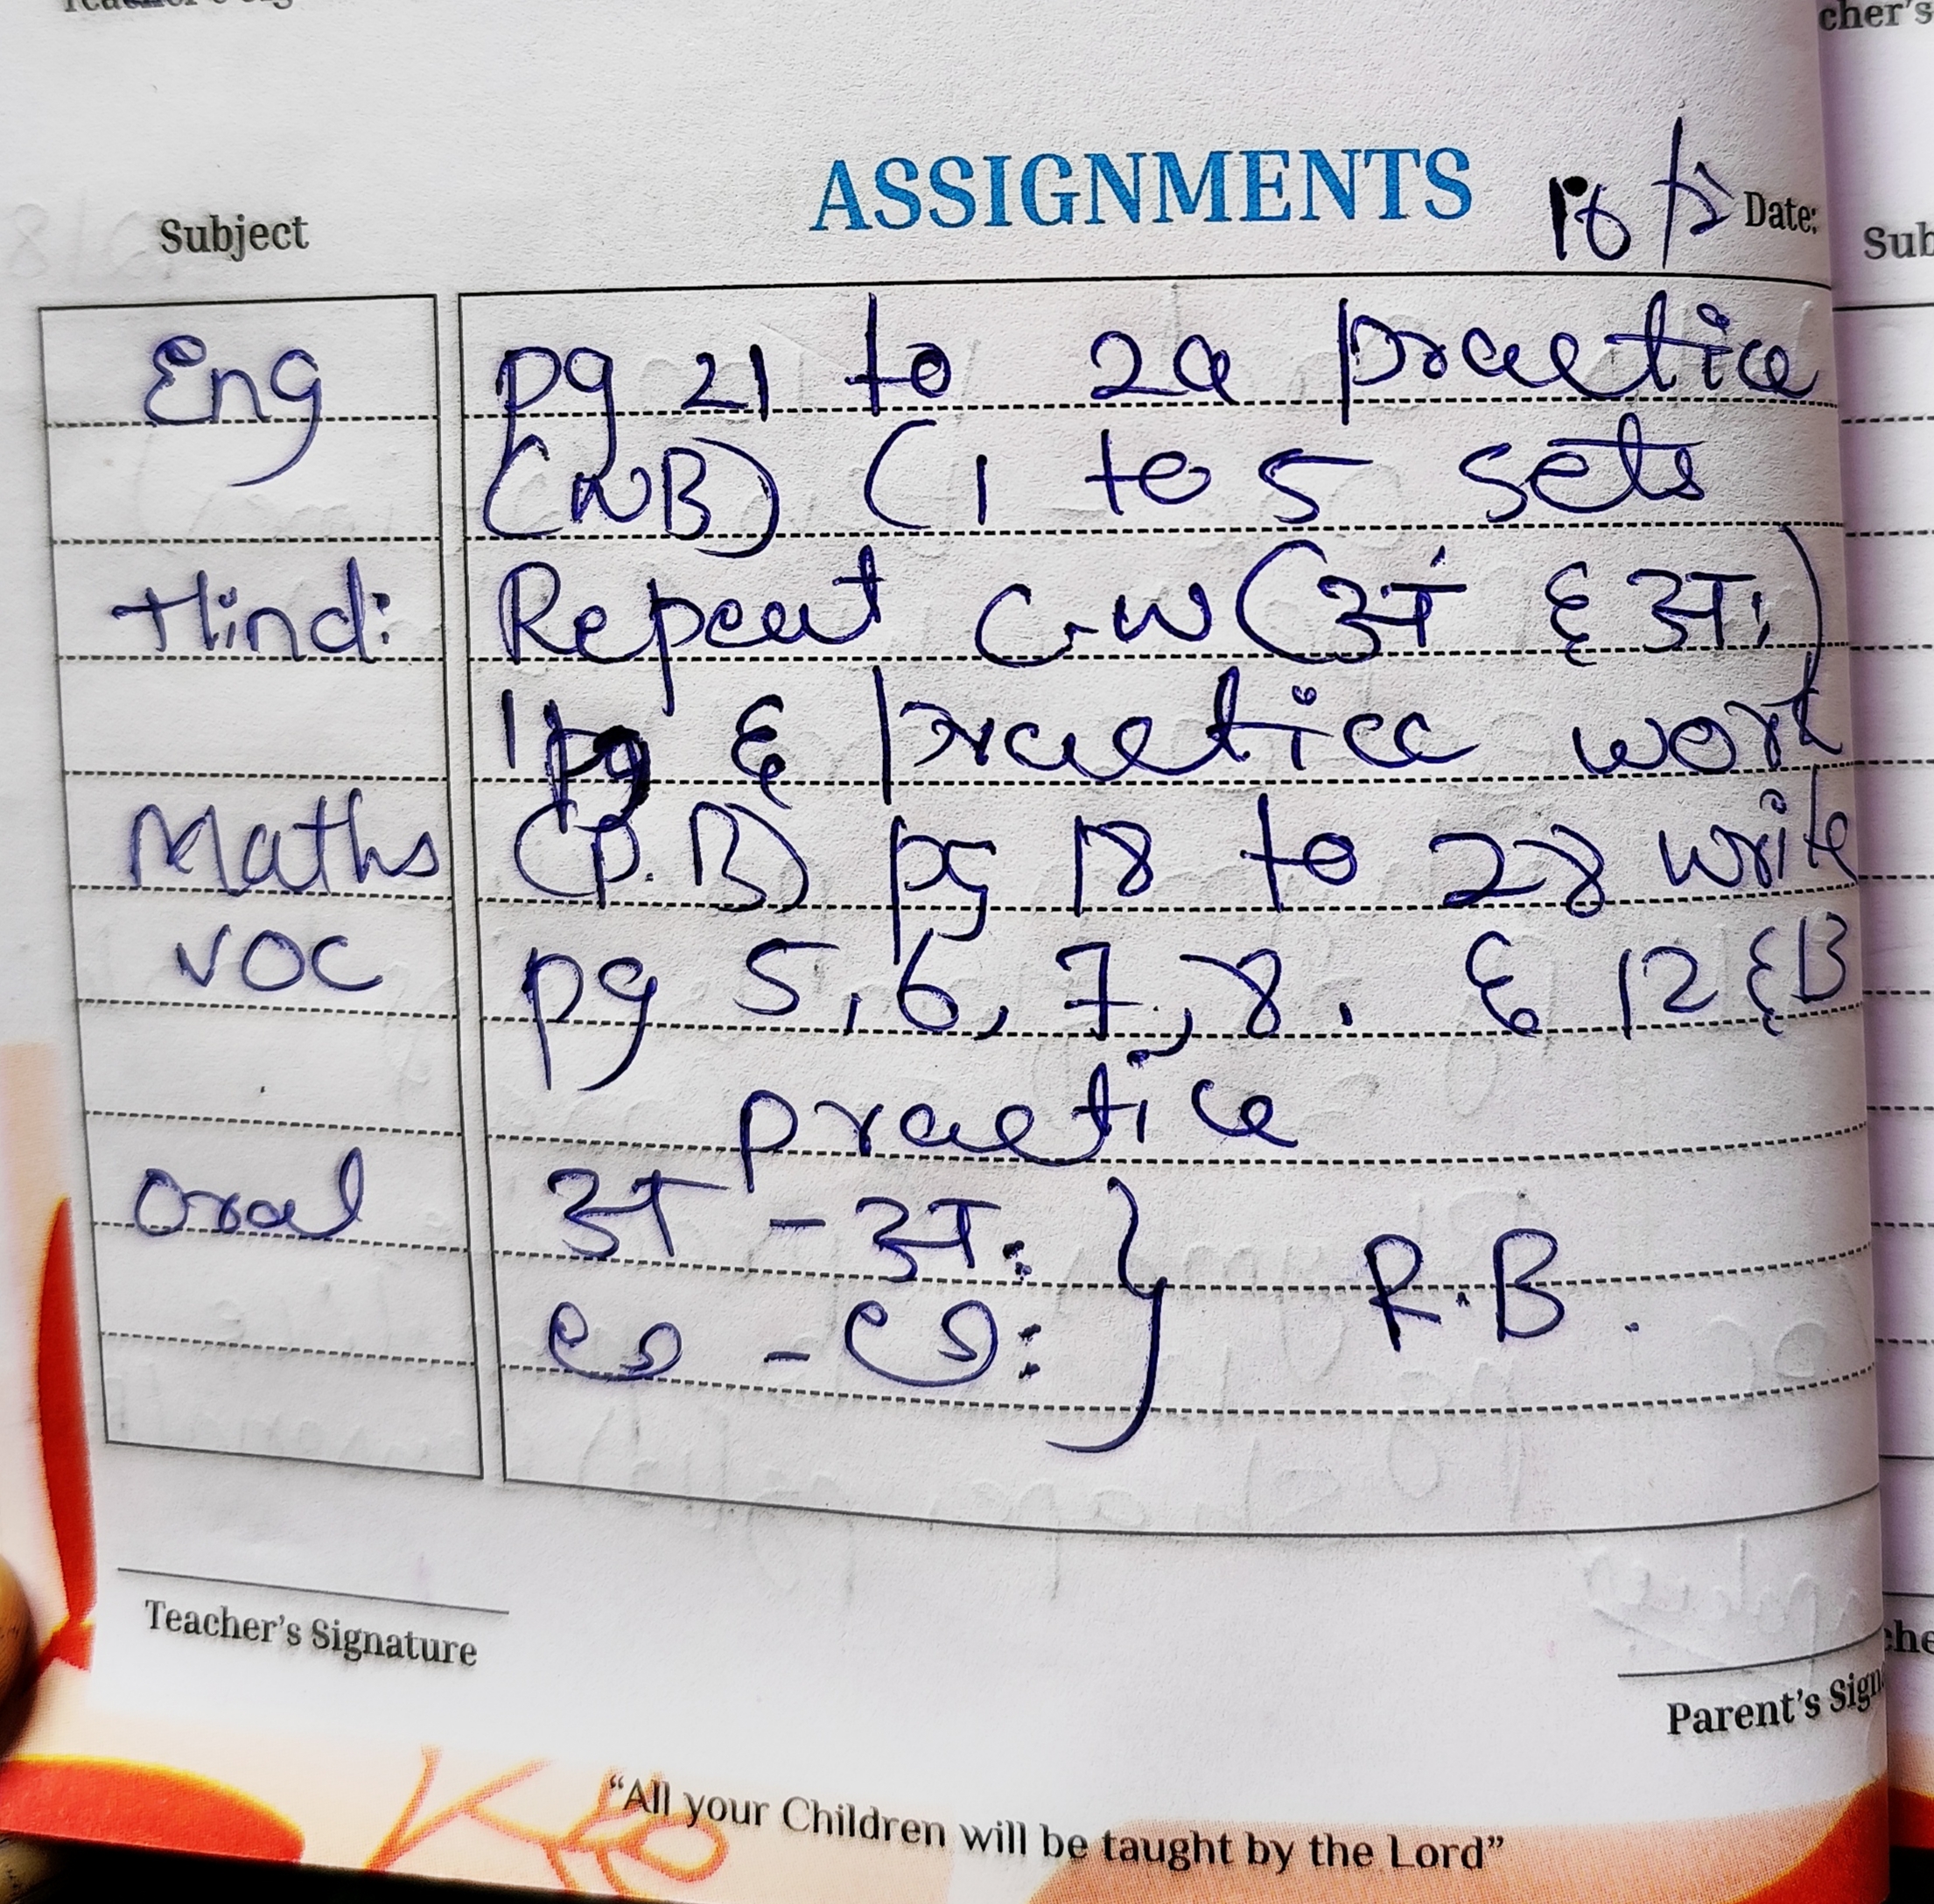 ASSIGNMENTS
Subject
Date:
Sub
Eng pg 21 to 24 practice
(NB) (1 to 5 sets
Hindi Repeat C.W (अं & अः)
1 pg & practice work
Maths (P.B) pg 18 to 28 write
VOC pg 5, 6, 7, 8. & 12 & 13
practice
Oral अ - अः } R.B.
అ - అః
Teacher's Signature
Parent's Sign
"All your Children will be taught by the Lord"